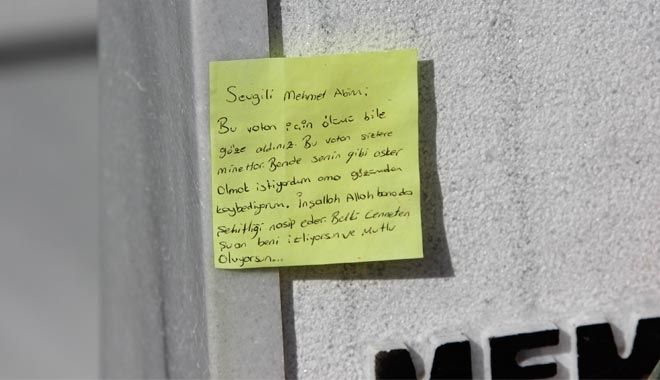 Sevgili Mehmet Abim;
Bu vatan için ölümü bile
göze aldınız. Bu vatan sizlere
minettar. Bende senin gibi asker
Olmak istiyordum ama gözümden
kaybediyorum. İnşallah Allah banada
Şehitliği nasip eder. Belki Cenneten
Şuan beni izliyorsun ve Mutlu
Oluyorsun...
MEM